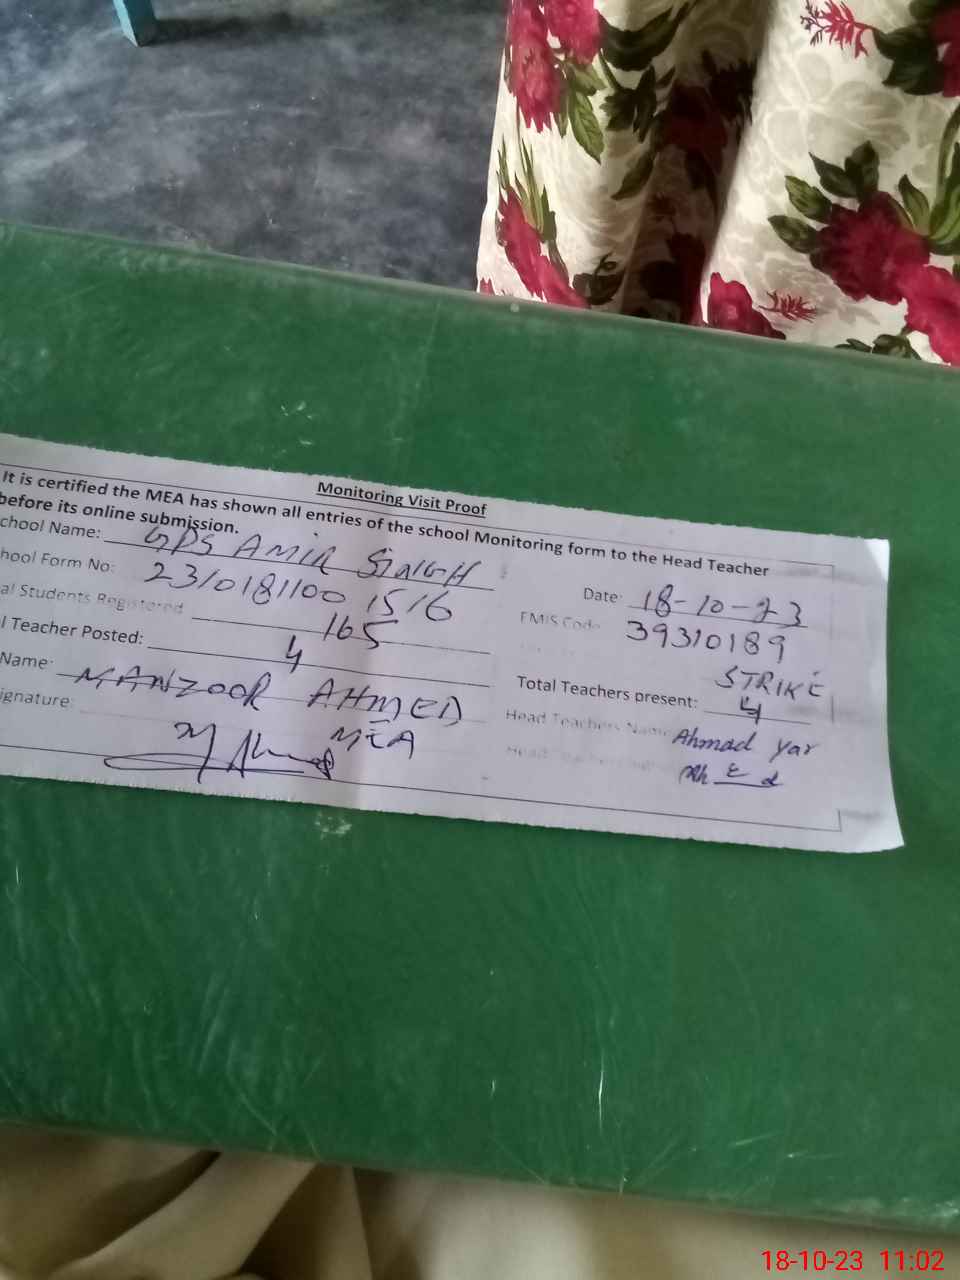 Monitoring Visit Proof
It is certified the MEA has shown all entries of the school Monitoring form to the Head Teacher
before its online submission.
chool Name: GPS AMIR SINGH
Date: 18-10-23
hool Form No: 231018110015/6
EMIS Code 39310189
al Students Registered 165
l Teacher Posted: 4
STRIKE
Total Teachers present: 4
Name: MANZOOR AHMED
MEA
Head Teachers Name Ahmad Yar
ignature:
18-10-23 11:02